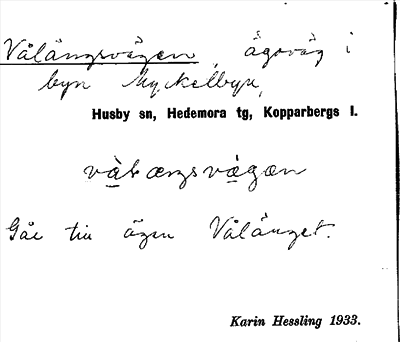 Vålängsvägen, ägoväg i
byn Myckelbyn,
Husby sn, Hedemora tg, Kopparbergs l.
Går till ägen Vålänget.
Karin Hessling 1933.